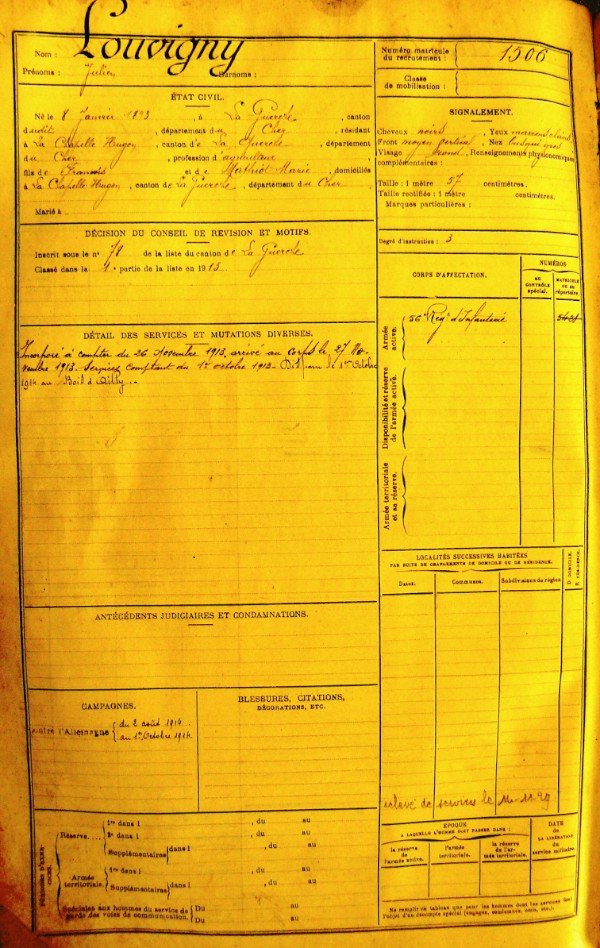 Nom : Louvigny
Prénoms : Julien Surnoms :
ÉTAT CIVIL.
Né le 8 Janvier 1893, à La Guerche, canton
dudit, département du Cher, résidant
à La Chapelle Hugon, canton de La Guerche, département
du Cher, profession d
fils de François et de Marie, domiciliés
à La Chapelle Hugon, canton de La Guerche, département du Cher.
Marié à
DÉCISION DU CONSEIL DE REVISION ET MOTIFS.
Inscrit sous le n° 78 de la liste du canton de La Guerche
Classé dans la partie de la liste en 1913.
DÉTAIL DES SERVICES ET MUTATIONS DIVERSES.
Incorporé à compter du 26 Novembre 1913, arrivé au corps le 27 No-
vembre 1913. Services comptant du 1er octobre 1913. Disparu le 1er Octobre
1914 au Bois d'Ailly.
ANTÉCÉDENTS JUDICIAIRES ET CONDAMNATIONS.
CAMPAGNES.
contre l'Allemagne du 2 août 1914
au 1er Octobre 1914.
BLESSURES, CITATIONS,
DÉCORATIONS, ETC.
Réserve.... 1re dans l , du au
2e dans l , du au
Supplémentaires dans l , du au
Armée territoriale. 1re dans l , du au
Supplémentaires dans l , du au
Spéciales aux hommes du service de
garde des voies de communication. Du au
Du au
Numéro matricule
du recrutement : 1506
Classe
de mobilisation :
SIGNALEMENT.
Cheveux noirs, Yeux marrons
Front moyen, Nez
Visage rond. Renseignements physionomiques
complémentaires :
Taille : 1 mètre 57 centimètres.
Taille rectifiée : 1 mètre centimètres.
Marques particulières :
Degré d'instruction : 3
CORPS D'AFFECTATION.
NUMÉROS
AU
CONTRÔLE
spécial.
MATRICULE
OU AU
répertoire.
Armée
active.
56e Régt d'Infanterie
Disponibilité et réserve
de l'armée active.
Armée territoriale
et sa réserve.
LOCALITÉS SUCCESSIVES HABITÉES
PAR SUITE DE CHANGEMENTS DE DOMICILE OU DE RÉSIDENCE.
Dates.
Communes.
Subdivisions de région
D. DOMICILE.
R. RÉSIDENCE.
relevé de services le
ÉPOQUE
À LAQUELLE L'HOMME DOIT PASSER DANS :
la réserve
de l'armée active.
l'armée
territoriale.
la réserve
de l'ar-
mée territoriale.
DATE
de
LA LIBÉRATION
du
service militaire.
Ne remplir ce tableau que pour les hommes dont les services font
l'objet d'un décompte spécial (engagés, condamnés, omis, etc.).